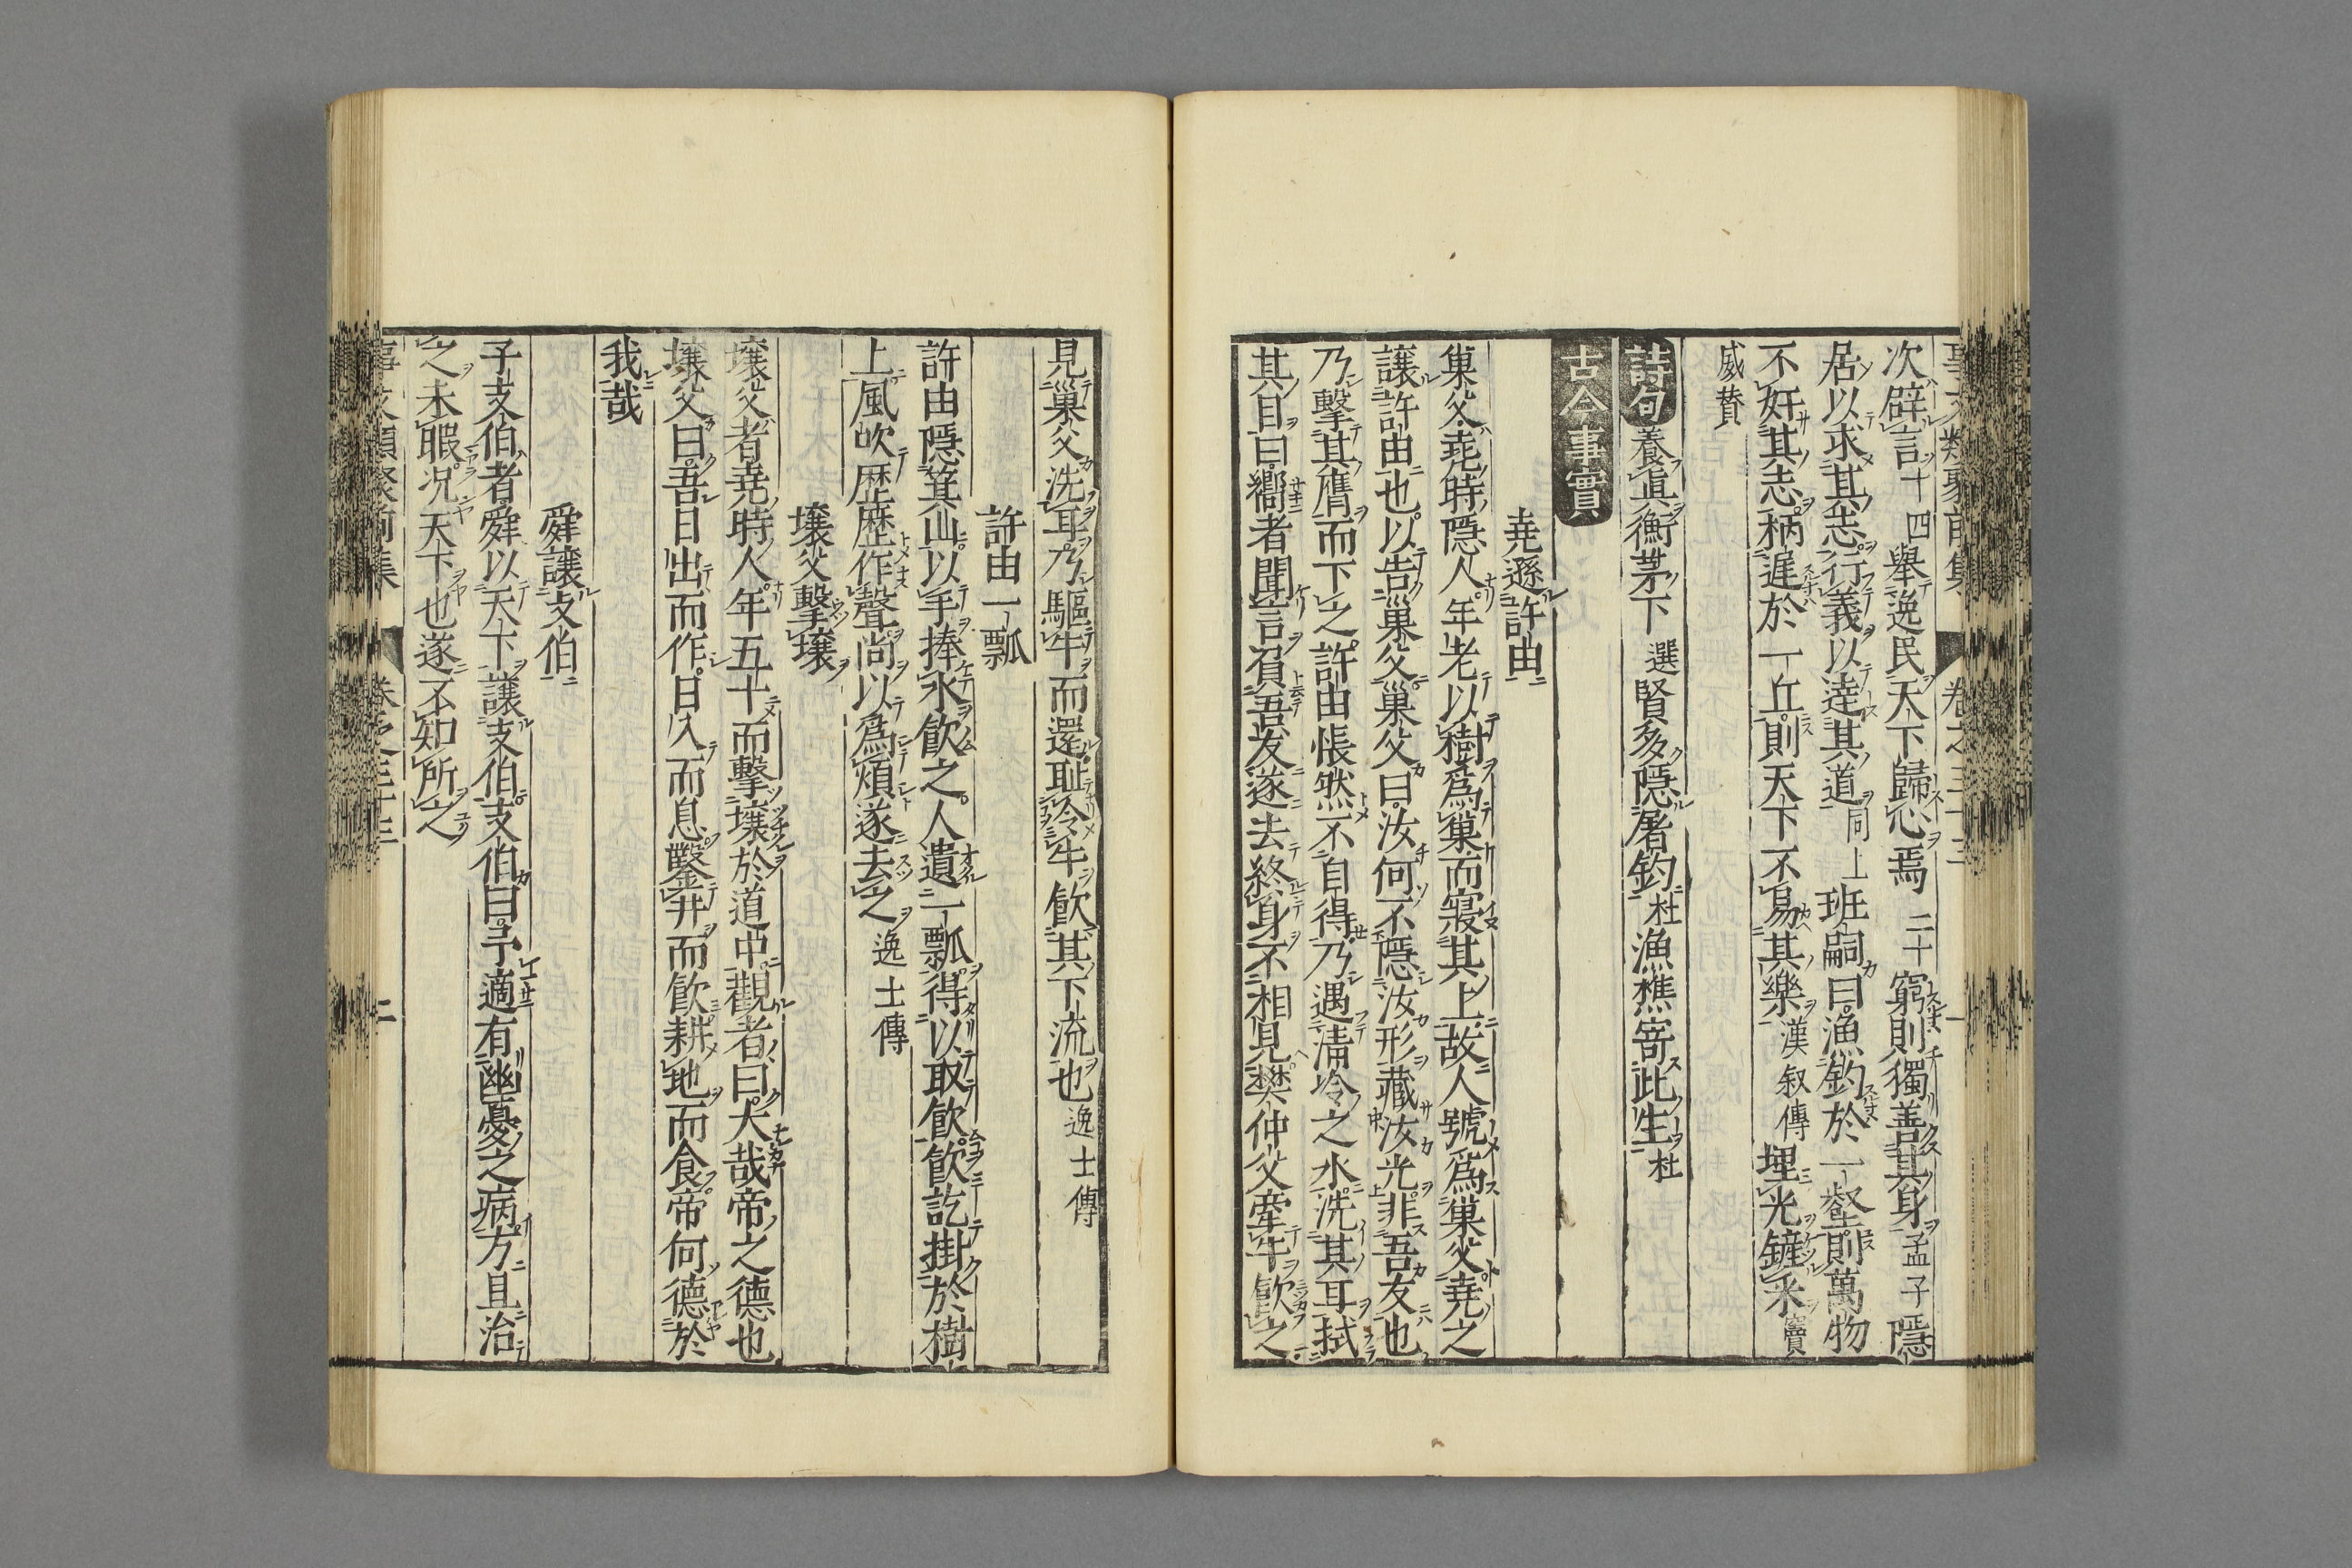 事文類聚前集 卷之三十三 一
次辟言十四舉逸民天下歸心焉二十窮則獨善其身孟子隱
居以求其志行義以逹其道同上班嗣曰漁釣於一壑則萬物
不奸其志栖遲於一丘則天下不易其樂漢叙傳埋光鏟采竇
威贊
詩句養眞衡茅下選賢多隱屠釣杜漁樵寄此生杜
古今事實
堯遜許由
巢父堯時隱人年老以樹爲巢而寢其上故人號爲巢父堯之
讓許由也以告巢父巢父曰汝何不隱汝形藏汝光非吾友也
乃擊其膺而下之許由悵然不自得乃遇淸泠之水洗其耳拭
其目曰嚮者聞言負吾友遂去終身不相見樊仲父牽牛飮之
見巢父洗耳乃驅牛而還耻令牛飮其下流也逸士傳
許由一瓢
許由隱箕山以手捧水飮之人遺一瓢得以取飮飮訖掛於樹
上風吹歷歷作聲尚以爲煩遂去之逸士傳
壤父擊壤
壤父者堯時人年五十而擊壤於道中觀者曰大哉帝之德也
壤父曰吾日出而作日入而息鑿井而飮耕地而食帝何德於
我哉
舜讓支伯
子支伯者舜以天下讓支伯支伯曰予適有幽憂之病方且治
之未暇况天下也遂不知所之
事文類聚前集 卷之三十三 二